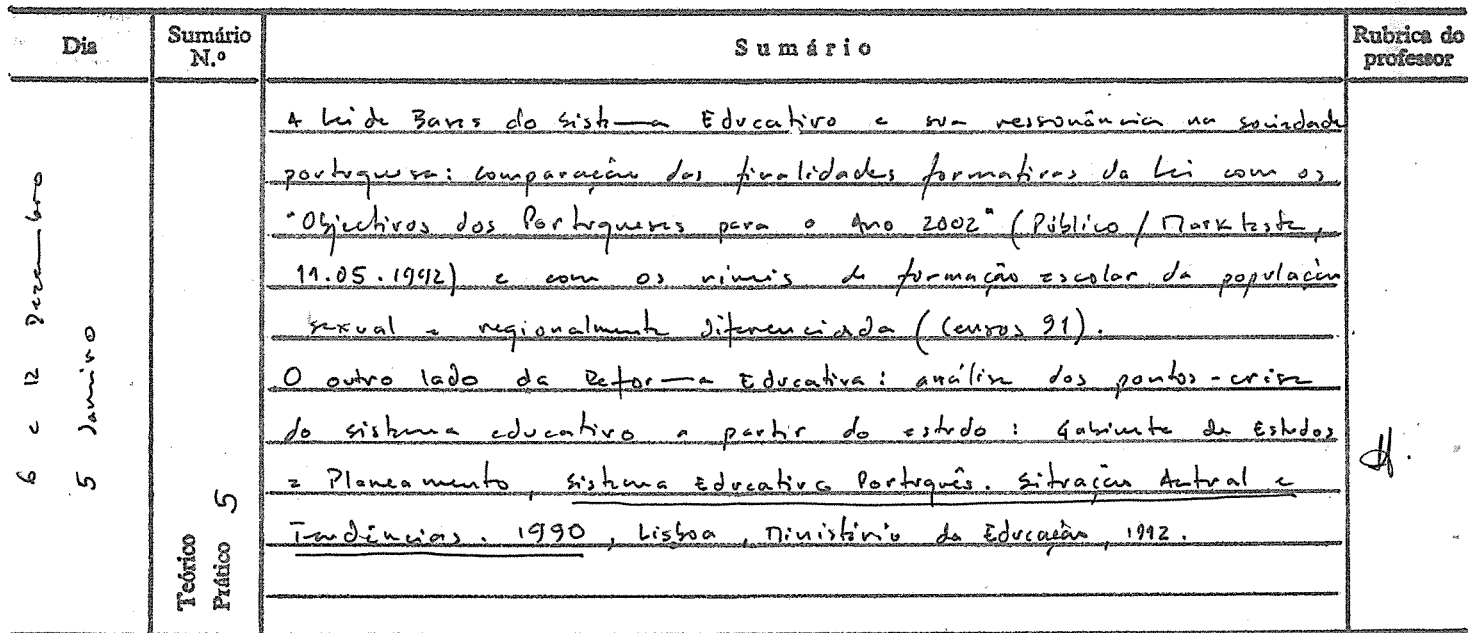 Dia
Sumário N.º
Sumário
Rubrica do professor
6 e 12 Dezembro
5 Janeiro
Teórico
Prático 5
A Lei de Bases do Sistema Educativo e sua ressonância na sociedade
portuguesa: comparação das finalidades formativas da Lei com os
"Objectivos dos Portugueses para o Ano 2002" (Público / Marktest,
11.05.1992) e com os níveis de formação escolar da população
sexual e regionalmente diferenciada (Censos 91).
O outro lado da Reforma Educativa: análise dos pontos-crise
do sistema educativo a partir do estudo: Gabinete de Estudos
e Planeamento, Sistema Educativo Português. Situação Actual e
Tendências. 1990, Lisboa, Ministério da Educação, 1992.